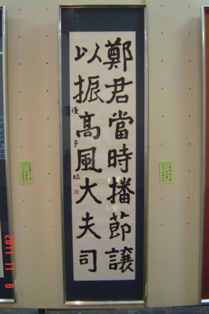 鄭君當時播節讓
以振高風大夫司
8 11 2011